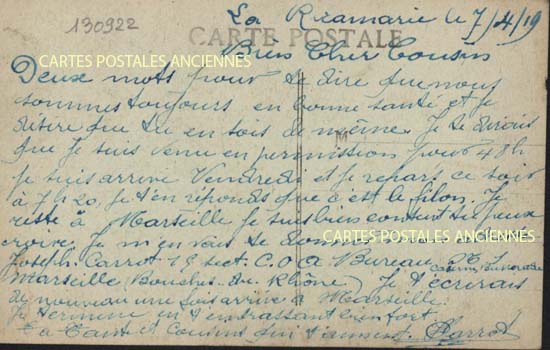 130922
La Ricamarie le 7/4/19
CARTE POSTALE
Bien Cher Cousin
CARTES POSTALES ANCIENNES
Deux mots pour te dire que nous
sommes toujours en bonne santé et je
désire que tu en sois de même. Je te dirais
que je suis venu en permission pour 48 h
je suis arrivé Vendredi et je repars ce soir
à 7h20, je t'en réponds que c'est le filon. Je
reste à Marseille je suis bien content tu peux
croire. Je m'en vais te
CARTES POSTALES ANCIENNES
Joseph Carrot 19 sect. C.O.A Bureau
Marseille (Bouches du Rhône) Je t'écrirais
de nouveau une fois arrivé à Marseille.
Je termine en t'embrassant bien fort
ta Tante et Cousins qui t'aiment. Carrot